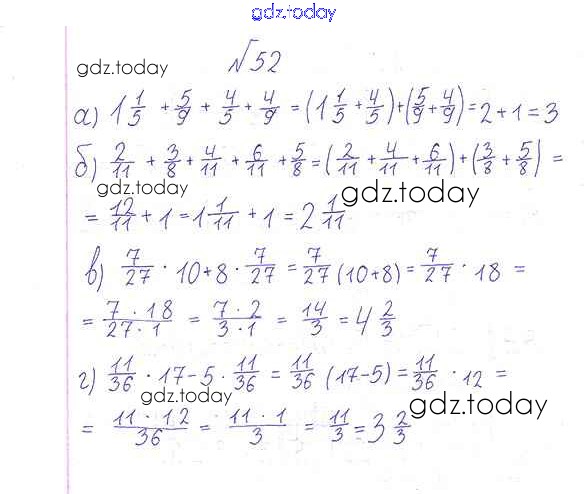 gdz.today
№52
gdz.today
а) 1 1/5 + 5/9 + 4/5 + 4/9 = (1 1/5 + 4/5) + (5/9 + 4/9) = 2 + 1 = 3
б) 2/11 + 3/8 + 4/11 + 6/11 + 5/8 = (2/11 + 4/11 + 6/11) + (3/8 + 5/8) =
gdz.today
gdz.today
= 12/11 + 1 = 1 1/11 + 1 = 2 1/11
в) 7/27 · 10 + 8 · 7/27 = 7/27 (10 + 8) = 7/27 · 18 =
= 7 · 18/27 · 1 = 7 · 2/3 · 1 = 14/3 = 4 2/3
г) 11/36 · 17 - 5 · 11/36 = 11/36 (17 - 5) = 11/36 · 12 =
gdz.today
gdz.today
= 11 · 12/36 = 11 · 1/3 = 11/3 = 3 2/3